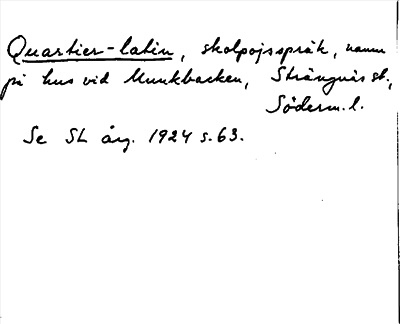 Quartier-latin, skolpojsspråk, namn
på hus vid Munkbacken, Strängnäs st.,
Söderm. l.
Se SL årg. 1924 s. 63.